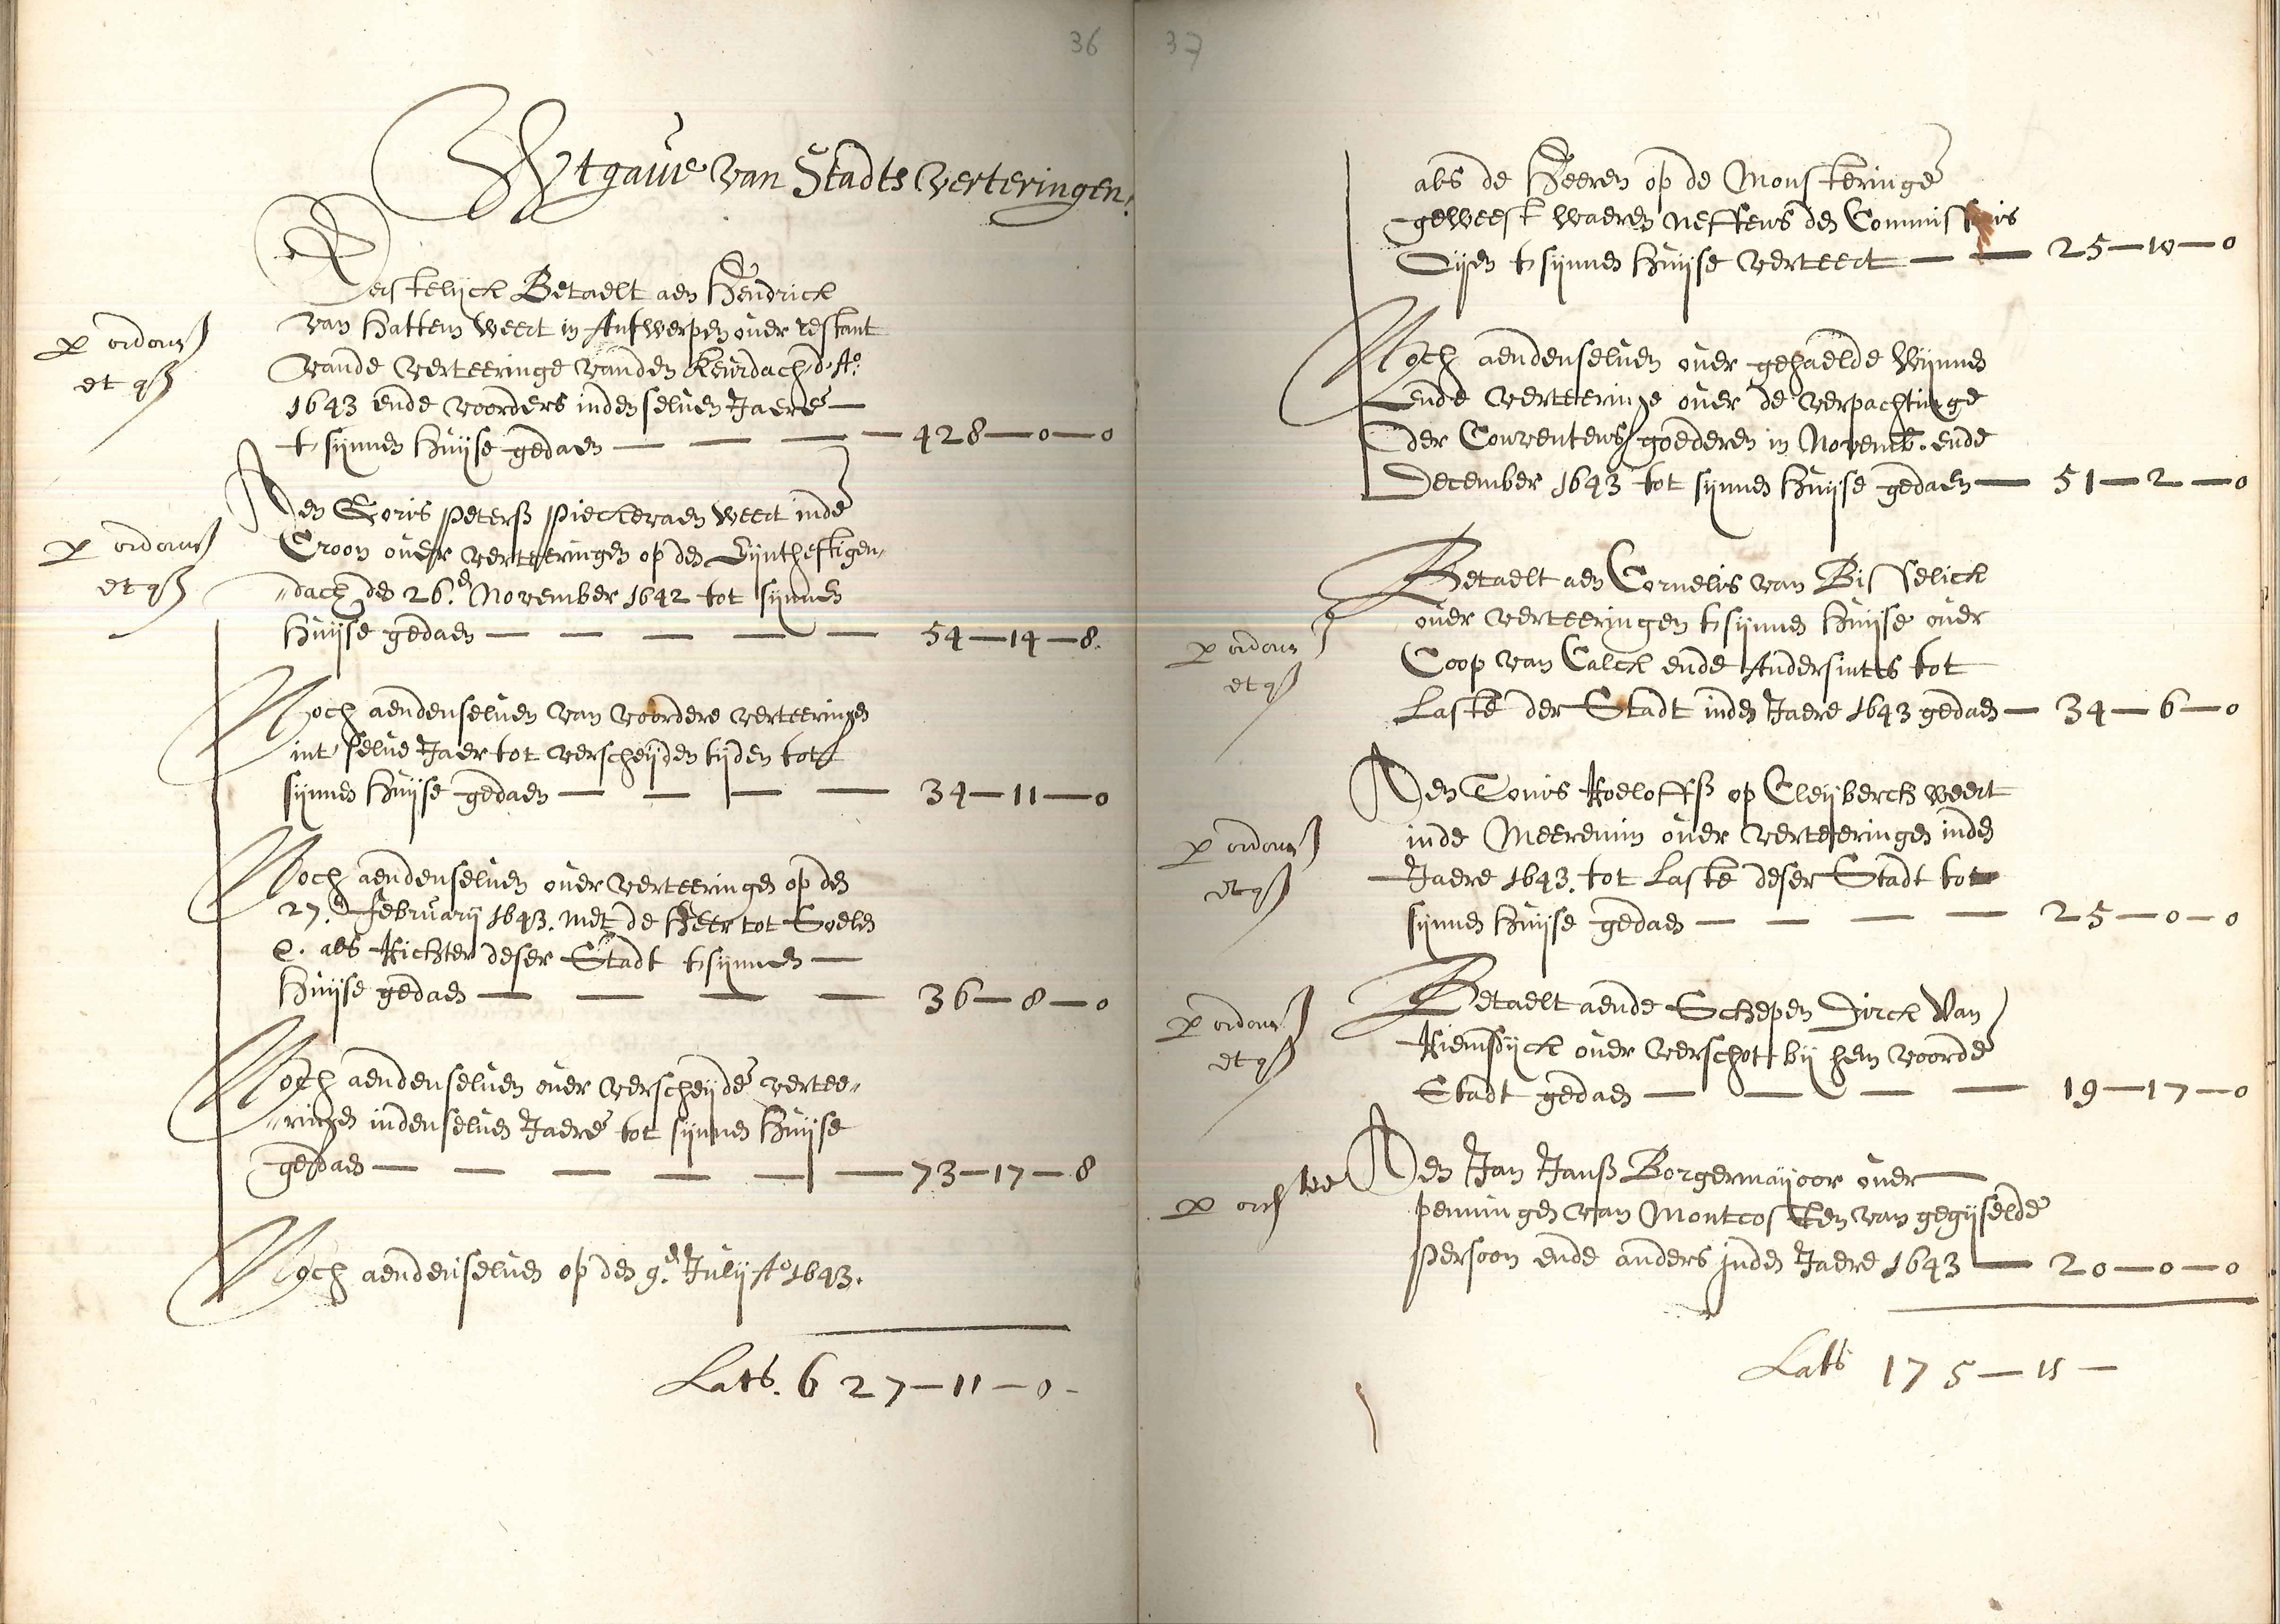 36
Wtgaue van Stadts verteringen.
Eerstelijck Betaelt aen Hendrick
van Hattem weert in Antwerpen ouer restant
vande verteeringe vanden Keurdach d'Ao.
1643 ende voorders indenseluen Jaere
t' sijnnen huijse gedaen 428-0-0
p ordon
et qt
Aen Goris Peterss Pieckeraen weert inde
Croon ouer verteeringen op den
dach den 26.en November 1642 tot sijnnen
huijse gedaen 54-14-8.
p ordon
et qt
Noch aendenseluen van voordere verteeringen
int' selue Jaer tot verscheijden tijden tot
sijnnen huijse gedaen 34-11-0
Noch aendenseluen ouer verteeringen op den
27.en februarij 1643. met de Heer tot Soelen
als Richter deser Stadt t' sijnnen
huijse gedaen 36-8-0
Noch aendenseluen ouer verscheijde vertee„
„ringen indenseluen Jaere tot sijnnen huijse
gedaen 73-17-8
Noch aendenseluen op den 9.en Julij Ao 1643.
Lats. 627-11-0-
37
als de Heeren op de Monsteringe
geweest waeren neffens den Commissaris
t' sijnnen huijse verteert 25-10-0
Noch aendenseluen ouer gehaelde Wijnnen
ende verteeringe ouer de verpachtinge
der Conventens goederen in Novemb. ende
December 1643 tot sijnnen huijse gedaen 51-2-0
Betaelt aen Cornelis van Bisselick
ouer verteeringen t' sijnnen huijse ouer
Coop van Calck ende Andersints tot
Laste der Stadt inden Jaere 1643 gedaen 34-6-0
p ordon
et qt
Aen Tonis Roeloffss op Cleijberch weert
inde Meeremin ouer verteeringen inden
Jaere 1643. tot Laste deser Stadt tot
sijnnen huijse gedaen 25-0-0
p ordon
et qt
Betaelt aende Schepen Dirck Van
Riemsdijck ouer verschot bij hem voorde
Stadt gedaen 19-17-0
p ordon
et qt
Aen Jan Janss Borgermaijoor ouer
penningen van Montcosten van gegijselde
Persoon ende anders inden Jaere 1643 20-0-0
Lats 175-15-